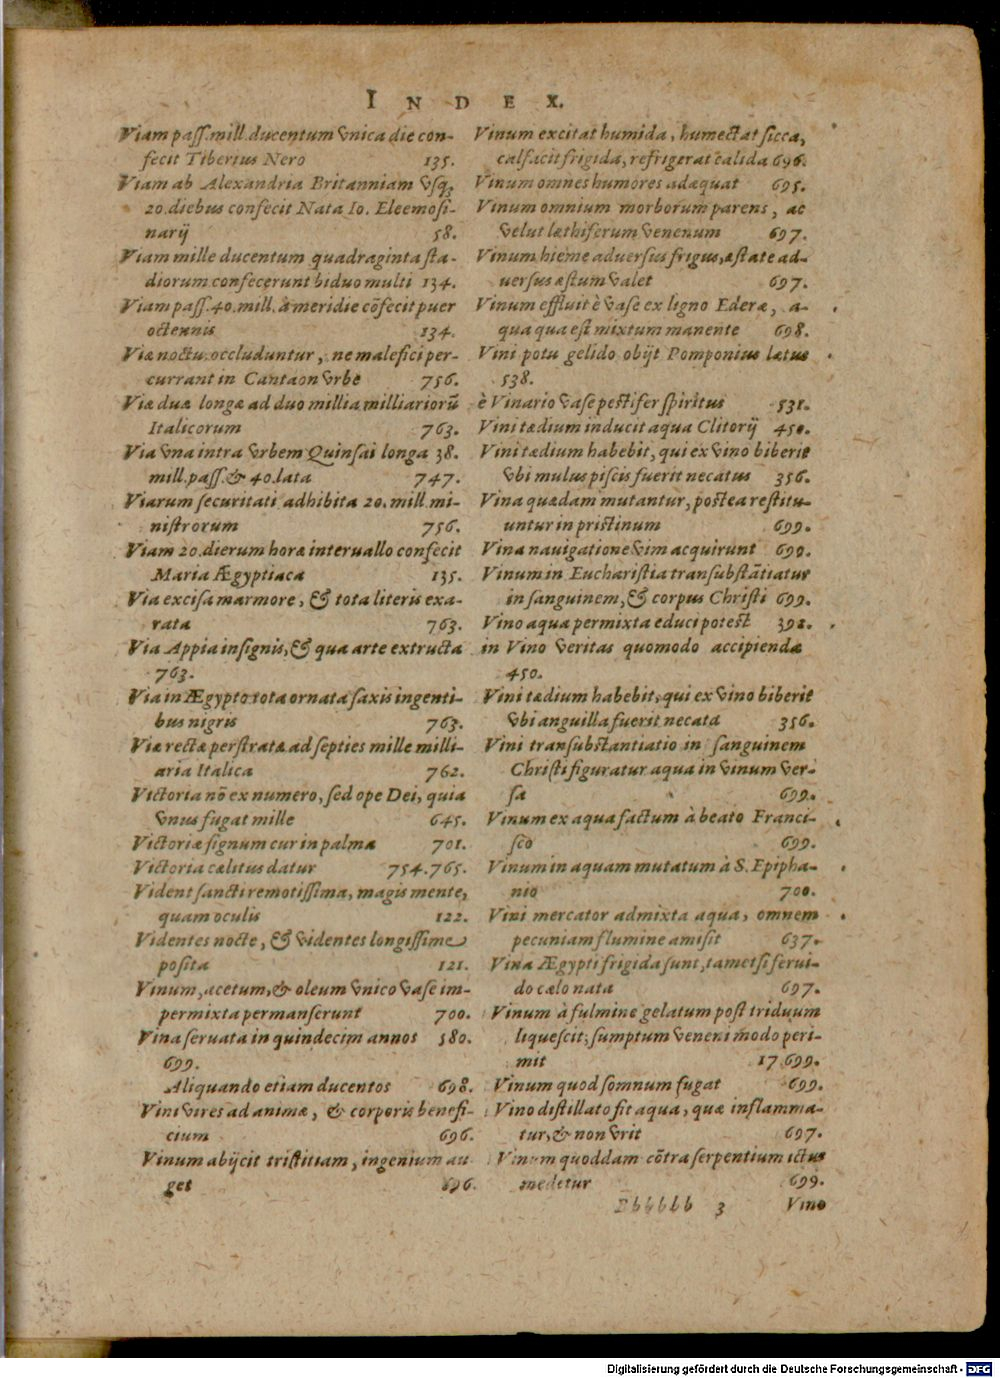 INDEX.
Viam pass. mill. ducentum vnica die con-
fecit Tiberius Nero 135.
Viam ab Alexandria Britanniam vsq;
20. diebus confecit Nata Io. Eleemosi-
narij 58.
Viam mille ducentum quadraginta sta-
diorum confecerunt biduo multi 134.
Viam pass. 40. mill. à meridie cōfecit puer
octennis 134.
Viæ noctu occluduntur, ne malefici per-
currant in Cantaon vrbe 756.
Viæ duæ longæ ad duo millia milliariorū
Italicorum 763.
Via vna intra vrbem Quinsai longa 38.
mill. pass. & 40. lata 747.
Viarum securitati adhibita 20. mill. mi-
nistrorum 756.
Viam 20. dierum horæ interuallo confecit
Maria Ægyptiaca 135.
Via excisa marmore, & tota literis exa-
rata 763.
Via Appia insignis, & qua arte extructa
763.
Via in Ægypto tota ornata saxis ingenti-
bus nigris 763.
Viæ rectæ perstratæ ad septies mille milli-
aria Italica 762.
Victoria nō ex numero, sed ope Dei, quia
vnus fugat mille 645.
Victoriæ signum cur in palma 701.
Victoria cælitus datur 754.765.
Vident sancti remotissima, magis mente,
quam oculis 122.
Videntes nocte, & videntes longissime
posita 121.
Vinum, acetum, & oleum vnico vase im-
permixta permanserunt 700.
Vina seruata in quindecim annos 580.
699.
Aliquando etiam ducentos 698.
Vini vires ad animæ, & corporis benefi-
cium 696.
Vinum abijcit tristitiam, ingenium au
get 696.
Vinum excitat humida, humectat sicca,
calfacit frigida, refrigerat calida 696.
Vinum omnes humores adæquat 695.
Vinum omnium morborum parens, ac
velut læthiferum venenum 697.
Vinum hieme aduersus frigus, æstate ad-
uersus æstum valet 697.
Vinum effluit è vase ex ligno Ederæ, a-
qua qua est mixtum manente 698.
Vini potu gelido obijt Pomponius lætus
538.
è Vinario vase pestifer spiritus 531.
Vini tædium inducit aqua Clitorij 450.
Vini tædium habebit, qui ex vino biberit
vbi mulus piscis fuerit necatus 356.
Vina quædam mutantur, postea restitu-
untur in pristinum 699.
Vina nauigatione vim acquirunt 699.
Vinum in Eucharistia transubstātiatur
in sanguinem, & corpus Christi 699.
Vino aqua permixta educi potest 392.
in Vino veritas quomodo accipienda
450.
Vini tædium habebit, qui ex vino biberit
vbi anguilla fuerit necata 356.
Vini transubstantiatio in sanguinem
Christi figuratur aqua in vinum ver-
sa 699.
Vinum ex aqua factum à beato Franci-
sco 699.
Vinum in aquam mutatum à S. Epipha-
nio 700.
Vini mercator admixta aqua, omnem
pecuniam flumine amisit 637.
Vina Ægypti frigida sunt, tametsi ferui-
do cælo nata 697.
Vinum à fulmine gelatum post triduum
liquescit; sumptum veneni modo peri-
mit 17.699.
Vinum quod somnum fugat 699.
Vino distillato fit aqua, quæ inflamma-
tur, & non vrit 697.
Vinum quoddam cōtra serpentium ictus
medetur 699.
Bbbbbb 3 Vino
Digitalisierung gefördert durch die Deutsche Forschungsgemeinschaft - DFG